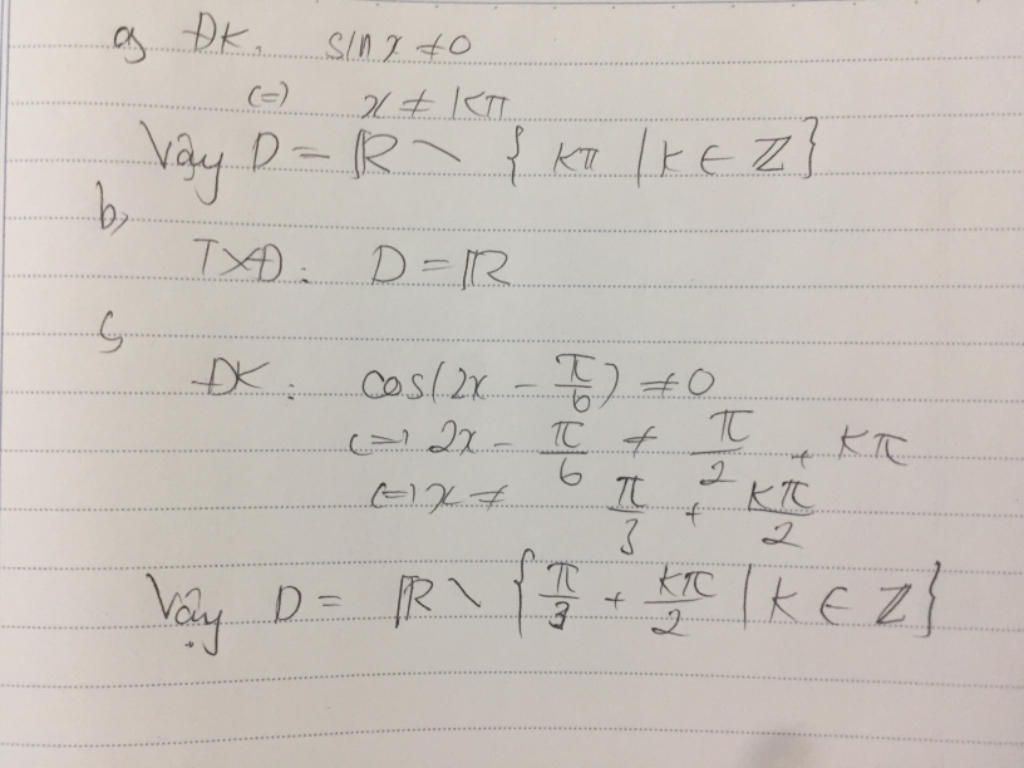 a, ĐK: sin x ≠ 0
(=) x ≠ kπ
Vậy D = ℝ \ { kπ | k ∈ ℤ }
b,
TXĐ: D = ℝ
c,
ĐK: cos(2x - π/6) ≠ 0
(=) 2x - π/6 ≠ π/2 + kπ
(=) x ≠ π/3 + kπ/2
Vậy D = ℝ \ { π/3 + kπ/2 | k ∈ ℤ }